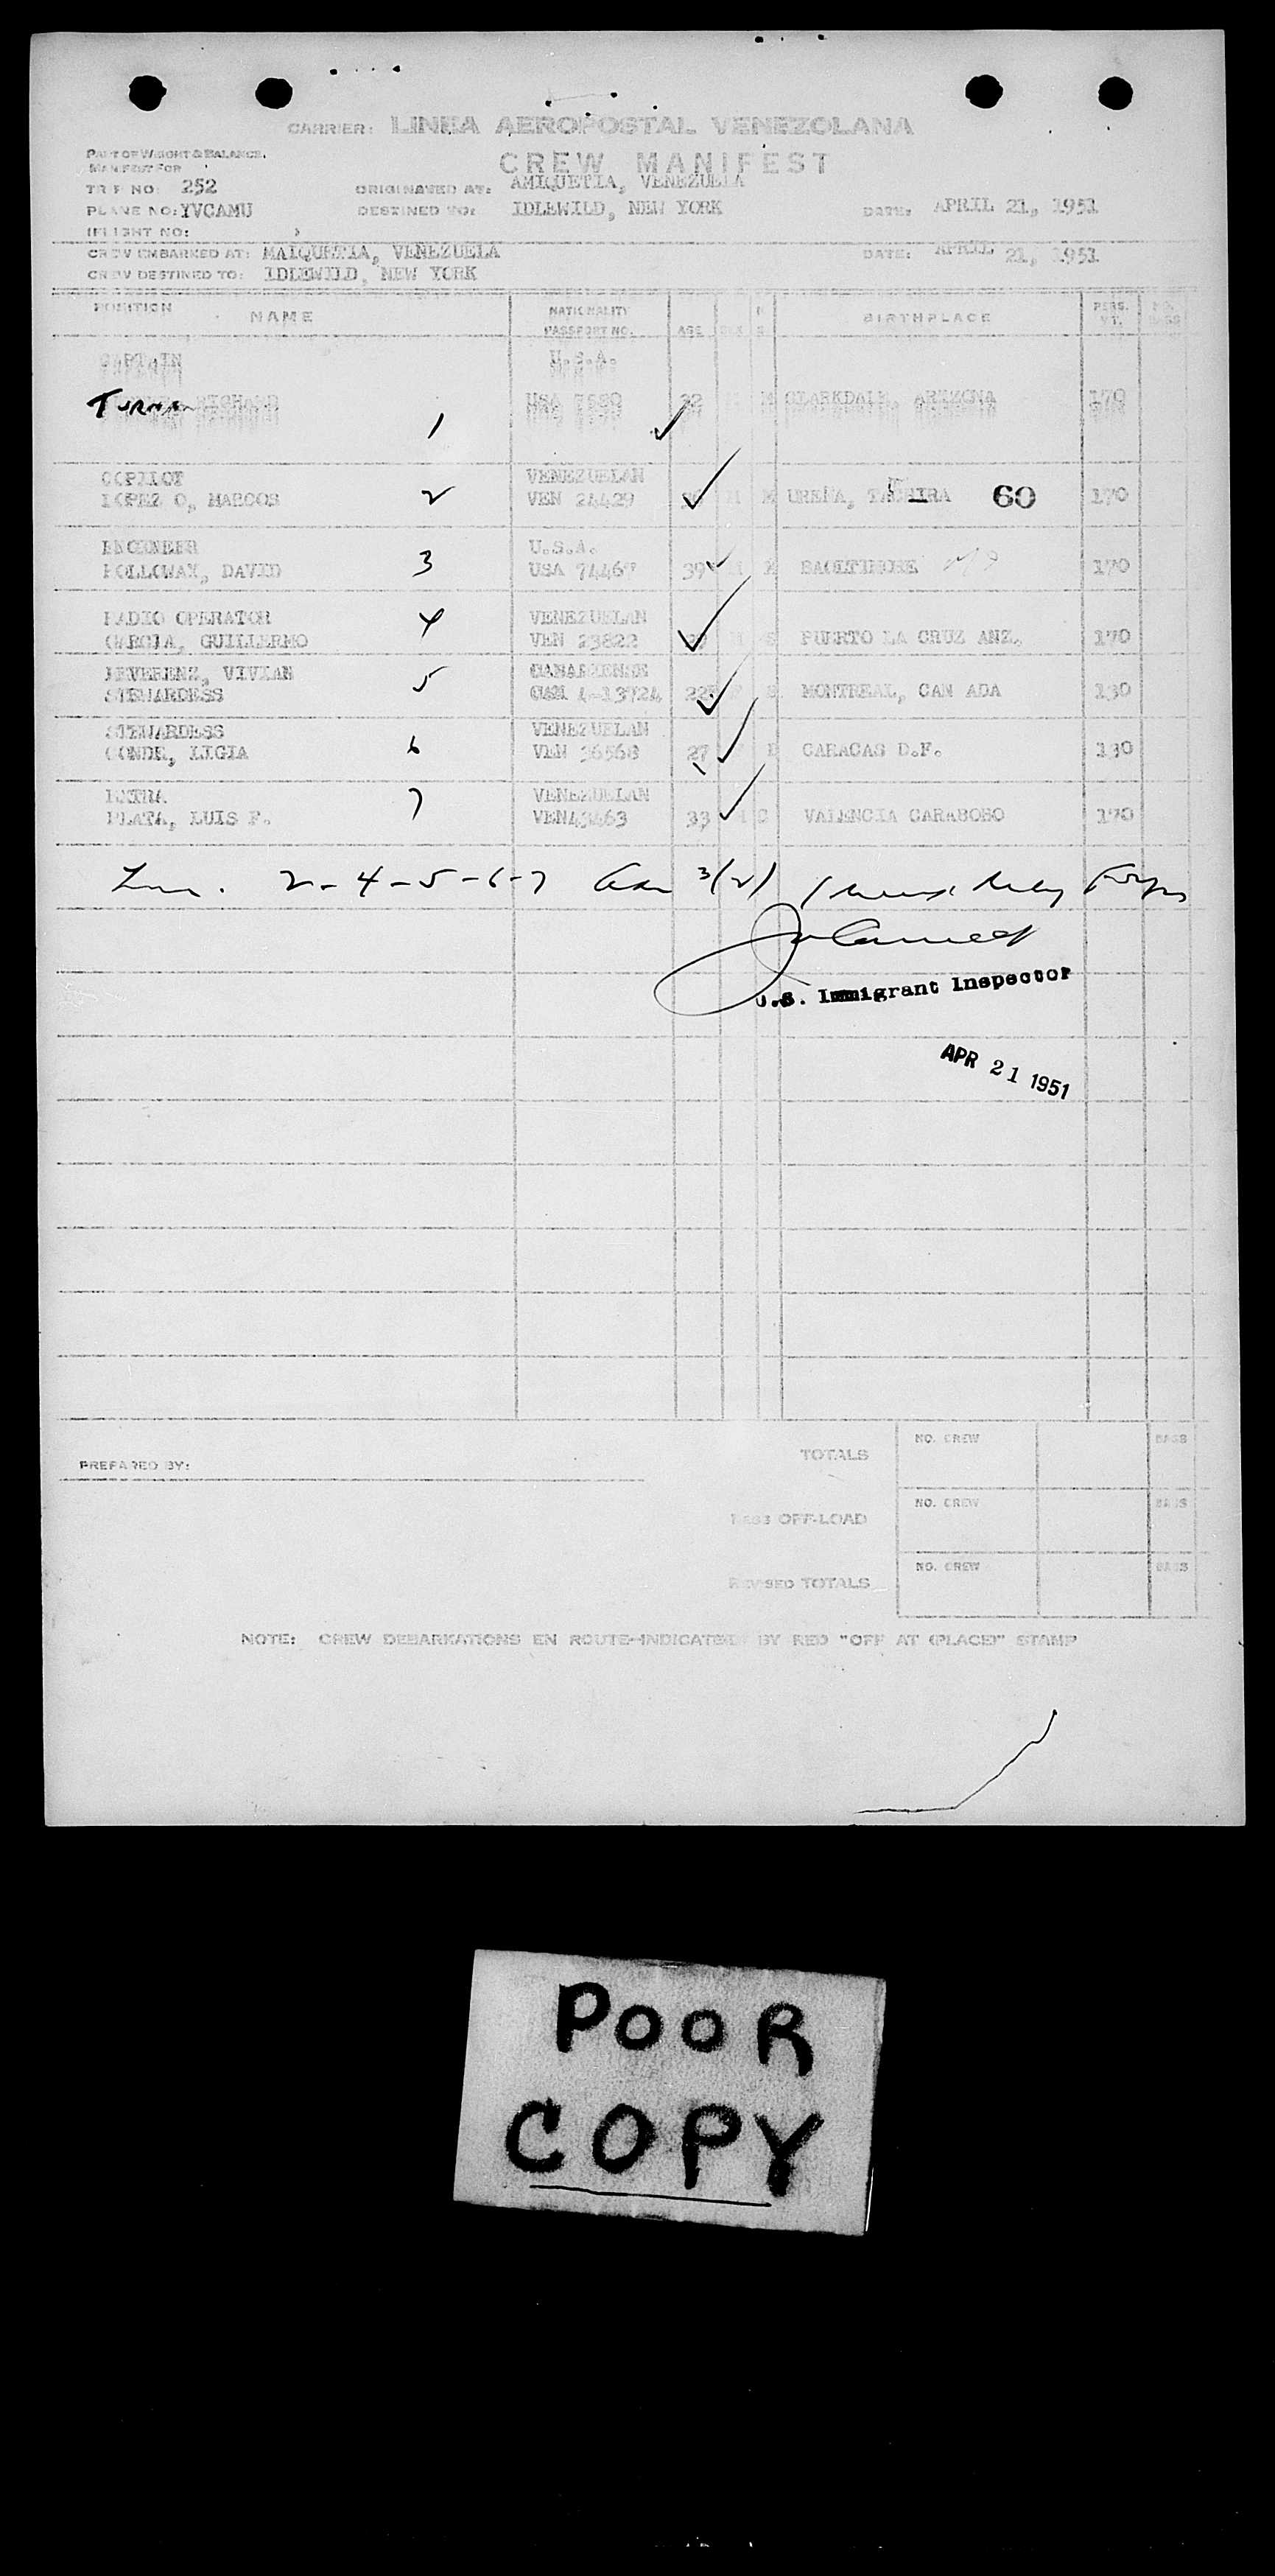 CARRIER: LINEA AEROPOSTAL VENEZOLANA
PART OF WEIGHT & BALANCE
MANIFEST FOR
CREW MANIFEST
TRIP NO: 252
ORIGINATED AT: AMIQUETIA, VENEZUELA
PLANE NO: YVCAMU
DESTINED TO: IDLEWILD, NEW YORK
DATE: APRIL 21, 1951
FLIGHT NO:
CREW EMBARKED AT: MAIQUETIA, VENEZUELA
DATE: APRIL 21, 1951
CREW DESTINED TO: IDLEWILD, NEW YORK
POSITION NAME NATIONALITY PASSPORT NO. AGE SEX BIRTHPLACE PERS. WT. NO. BAGS
CAPTAIN U.S.A.
RICHARD USA 32 M CLARKDALE, ARIZONA 170
1
COPILOT VENEZUELAN
LOPEZ O, MARCOS 2 VEN 24429 M UREÑA, TACHIRA 60 170
ENGINEER U.S.A.
HOLLOWAY, DAVID 3 USA 39 BAOLTIMORE 170
RADIO OPERATOR 4 VENEZUELAN
GARCIA, GUILLERMO VEN 23822 S PUERTO LA CRUZ ANZ. 170
VIVIAN 5
STEWARDESS CAN 4-13724 22 S MONTREAL, CAN ADA 130
STEWARDESS VENEZUELAN
CONDE, LIGIA 6 VEN 36568 27 CARACAS D.F. 130
EXTRA 7 VENEZUELAN
PLATA, LUIS F. VEN43463 33 VALENCIA CARABOBO 170
2-4-5-6-7 3(2)
U.S. Immigrant Inspector
APR 21 1951
PREPARED BY:
TOTALS NO. CREW BAGS
LESS OFF-LOAD NO. CREW BAGS
REVISED TOTALS NO. CREW BAGS
NOTE: CREW DEBARKATIONS EN ROUTE-INDICATED BY RED "OFF AT (PLACE)" STAMP
POOR
COPY